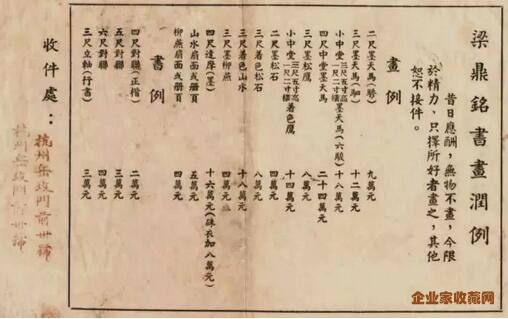 梁鼎銘書畫潤例
昔日應酬，無物不畫，今限
於精力，只擇所好者畫之，其他
恕不接件。
畫例
二尺墨天馬 九萬元
三尺墨天馬 十二萬元
小中堂三尺五寸高一尺二寸橫墨天馬(六駿) 十八萬元
四尺中堂墨天馬 二十四萬元
二尺墨松鷹 八萬元
小中堂三尺五寸高一尺二寸橫着色鷹 十四萬元
二尺墨松石 四萬元
三尺着色松石 八萬元
三尺着色山水 十八萬元
三尺墨柳燕 四萬元
四尺達摩(墨) 十六萬元(硃衣加八萬元)
山水扇面或册頁 五萬元
柳燕扇面或册頁 四萬元
書例
四尺對聯(正楷) 二萬元
五尺對聯 三萬元
六尺對聯 四萬元
三尺立軸(行書) 三萬元
收件處：
杭州岳坟門前卅號
杭州岳坟門前卅號
企业家收藏网